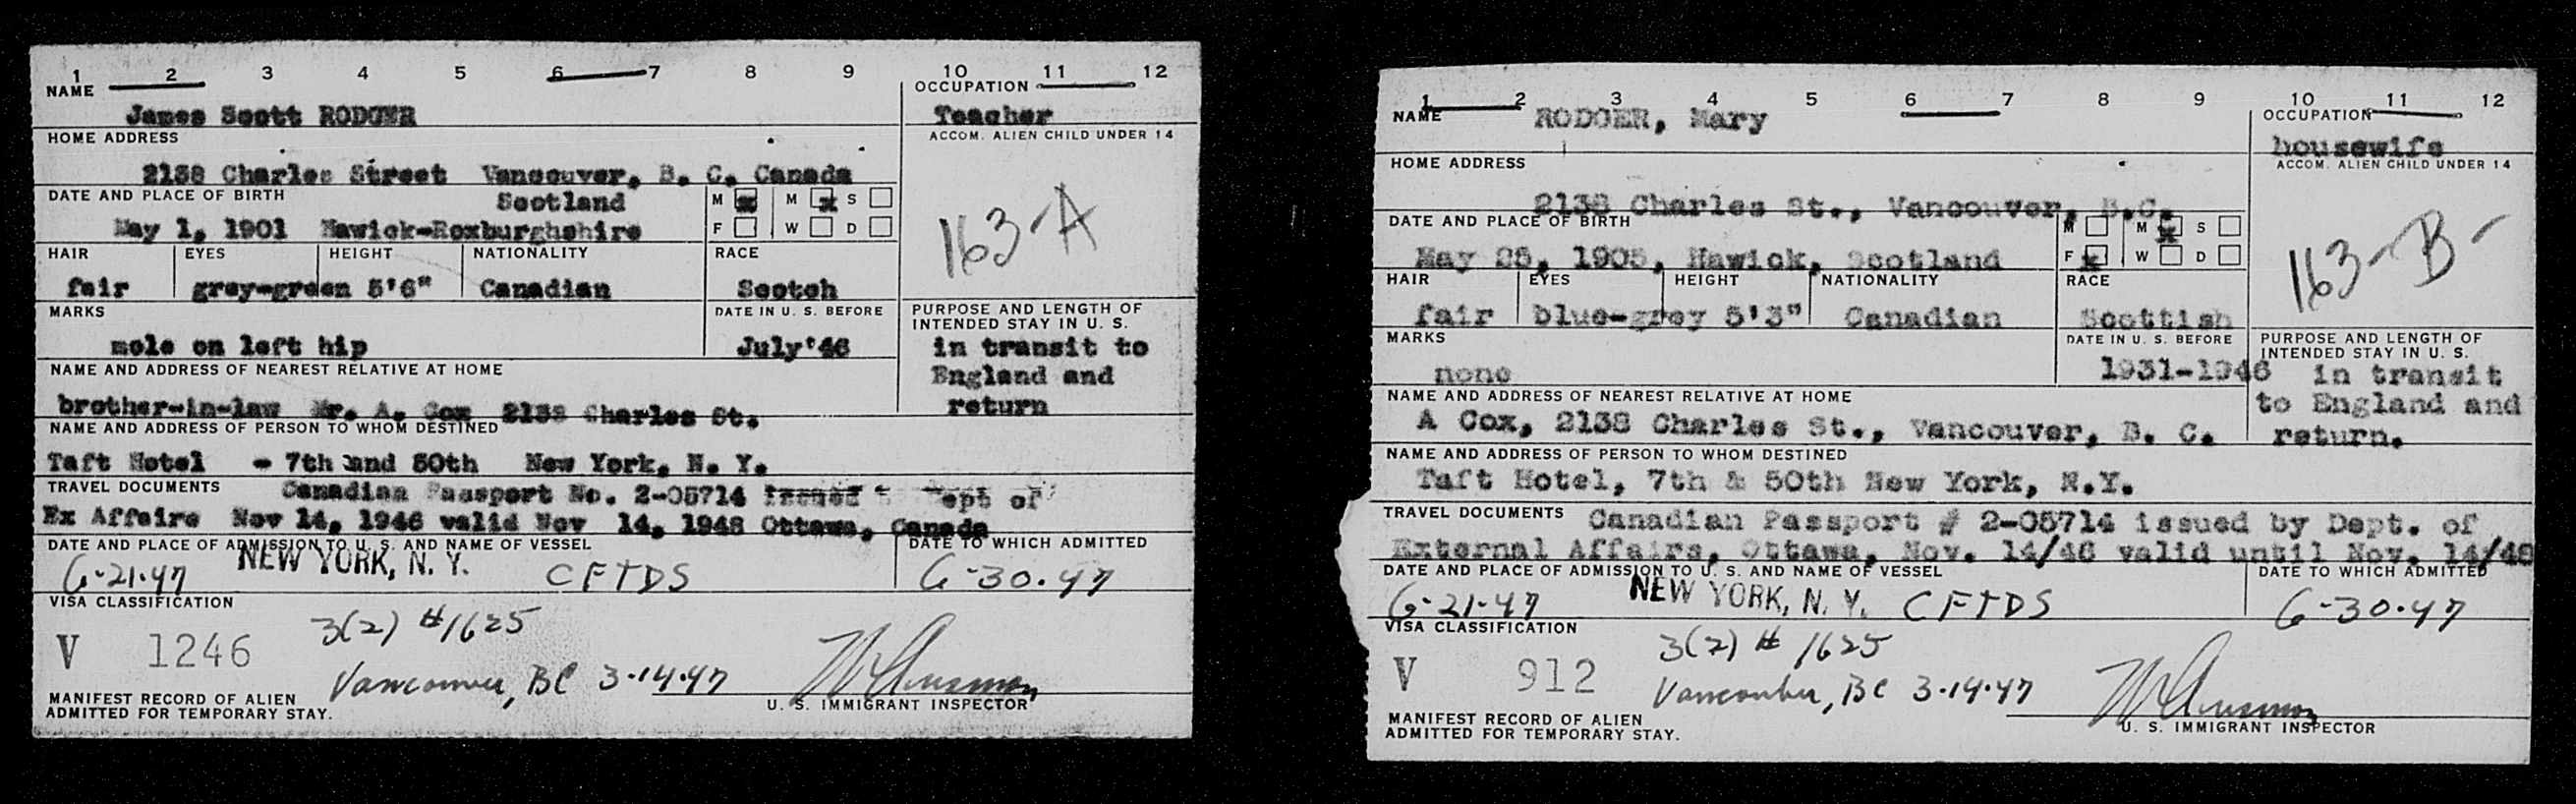 1 2 3 4 5 6 7 8 9 10 11 12
NAME OCCUPATION
James Scott RODGER Teacher
HOME ADDRESS ACCOM. ALIEN CHILD UNDER 14
2138 Charles Street Vancouver, B. C. Canada
DATE AND PLACE OF BIRTH Scotland M x M x S
May 1, 1901 Hawick-Roxburghshire F W D
163-A
HAIR EYES HEIGHT NATIONALITY RACE
fair grey-green 5'6" Canadian Scotch
MARKS DATE IN U. S. BEFORE PURPOSE AND LENGTH OF
INTENDED STAY IN U. S.
mole on left hip July '46 in transit to
NAME AND ADDRESS OF NEAREST RELATIVE AT HOME England and
brother-in-law Mr. A. Cox 2138 Charles St. return
NAME AND ADDRESS OF PERSON TO WHOM DESTINED
Taft Hotel - 7th and 50th New York, N. Y.
TRAVEL DOCUMENTS Canadian Passport No. 2-05714 issued Dept of
Ex Affairs Nov 14, 1946 valid Nov 14, 1948 Ottawa, Canada
DATE AND PLACE OF ADMISSION TO U. S. AND NAME OF VESSEL DATE TO WHICH ADMITTED
6-21-47 NEW YORK, N. Y. CFTDS 6-30-47
VISA CLASSIFICATION
V 1246 3(2) #1625
Vancouver, BC 3-14-47
MANIFEST RECORD OF ALIEN
ADMITTED FOR TEMPORARY STAY. U. S. IMMIGRANT INSPECTOR
1 2 3 4 5 6 7 8 9 10 11 12
NAME RODGER, Mary OCCUPATION
housewife
HOME ADDRESS ACCOM. ALIEN CHILD UNDER 14
2138 Charles St., Vancouver, B.C.
DATE AND PLACE OF BIRTH M M x S
May 25, 1905, Hawick, Scotland F x W D
163-B-
HAIR EYES HEIGHT NATIONALITY RACE
fair blue-grey 5'3" Canadian Scottish
MARKS DATE IN U. S. BEFORE PURPOSE AND LENGTH OF
INTENDED STAY IN U. S.
none 1931-1946 in transit
NAME AND ADDRESS OF NEAREST RELATIVE AT HOME to England and
A Cox, 2138 Charles St., Vancouver, B. C. return.
NAME AND ADDRESS OF PERSON TO WHOM DESTINED
Taft Hotel, 7th & 50th New York, N.Y.
TRAVEL DOCUMENTS Canadian Passport # 2-05714 issued by Dept. of
External Affairs, Ottawa, Nov. 14/46 valid until Nov. 14/48
DATE AND PLACE OF ADMISSION TO U. S. AND NAME OF VESSEL DATE TO WHICH ADMITTED
6-21-47 NEW YORK, N. Y. CFTDS 6-30-47
VISA CLASSIFICATION
V 912 3(2) # 1625
Vancouver, BC 3-14-47
MANIFEST RECORD OF ALIEN
ADMITTED FOR TEMPORARY STAY. U. S. IMMIGRANT INSPECTOR